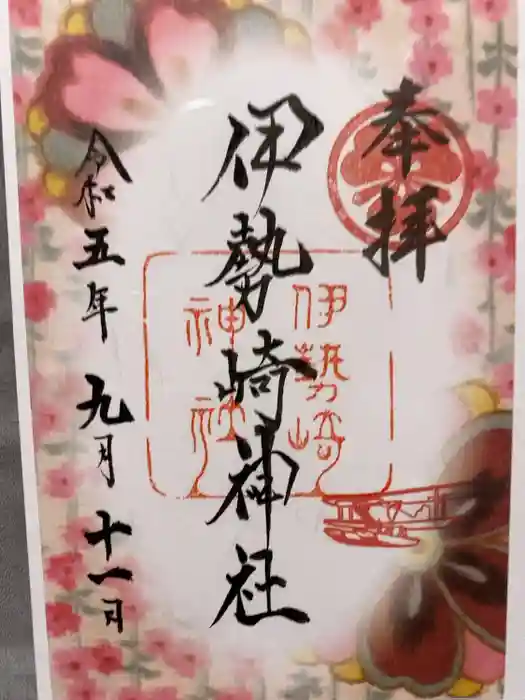 奉拝
伊勢崎神社
伊勢崎
神社
令和五年九月十一日